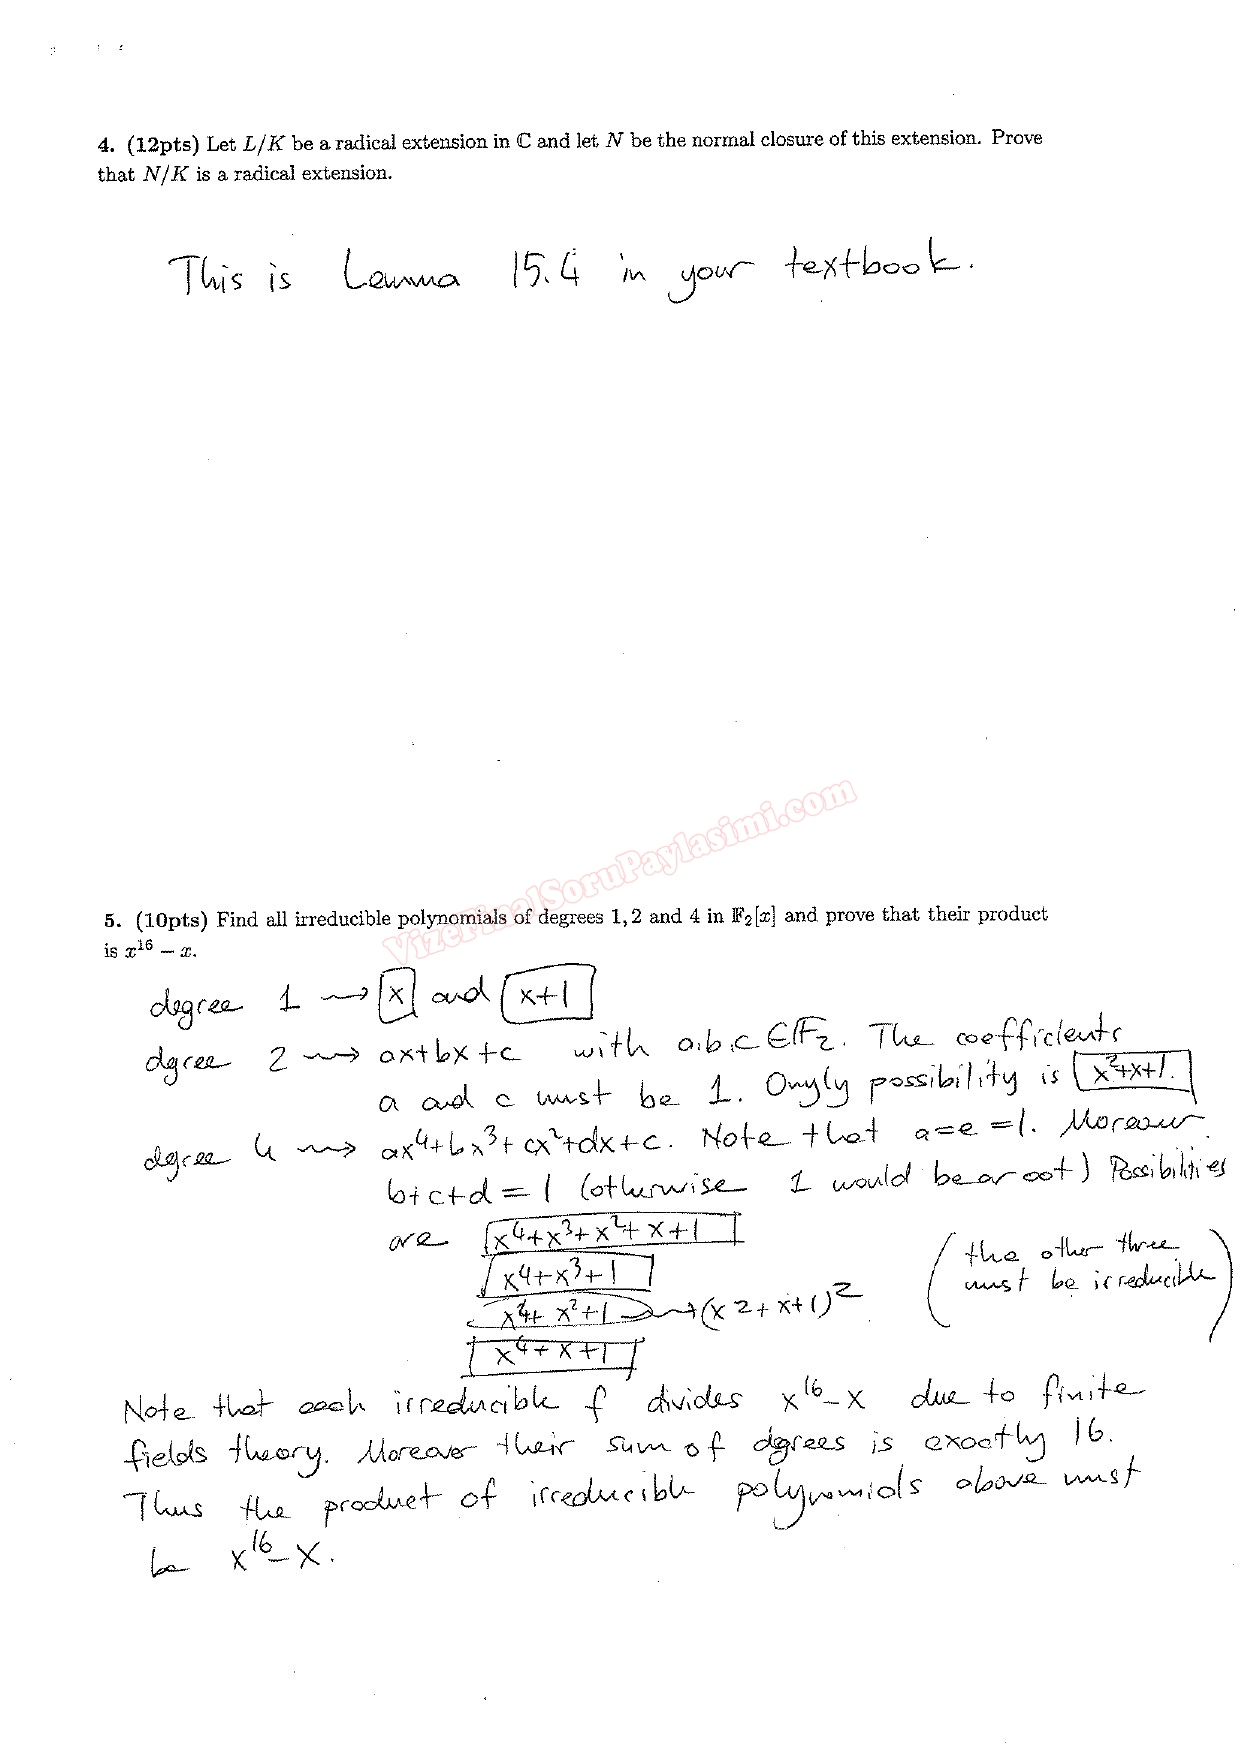 4. (12pts) Let L/K be a radical extension in ℂ and let N be the normal closure of this extension. Prove
that N/K is a radical extension.
This is Lemma 15.4 in your textbook.
VizeFinalSoruPaylasimi.com
5. (10pts) Find all irreducible polynomials of degrees 1, 2 and 4 in 𝔽₂[x] and prove that their product
is x¹⁶ − x.
degree 1 ⇝ x and x+1
dgree 2 ⇝ ax+bx+c with a,b,c ∈ 𝔽₂. The coefficients
a and c must be 1. Onyly possibility is x²+x+1.
dgree 4 ⇝ ax⁴+bx³+cx²+dx+c. Note that a=e=1. Moreover
b+c+d = 1 (otherwise 1 would be a root) Possibilities
are x⁴+x³+x²+x+1
x⁴+x³+1
x⁴+x²+1 → (x2+x+1)²
x⁴+x+1
(the other three
must be irreducible)
Note that each irreducible f divides x¹⁶−x due to finite
fields theory. Moreover their sum of dgrees is exactly 16.
Thus the product of irreducible polynomials above must
be x¹⁶−x.